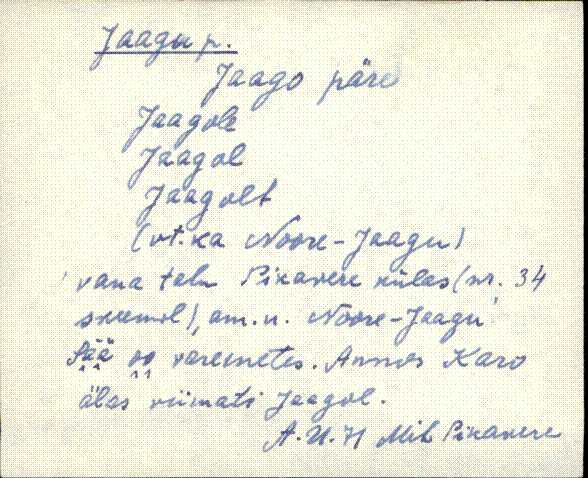 Jaagu p.
Jaago päre
Jaagole
Jaagol
Jaagolt
(vt. ka Noore-Jaagu)
vana talu Pikavere külas (nr. 34
skeemil), am. n. Noore-Jaagu
Sää oo varemetes. Annus Karo
älas viimati Jaagol.
A.U. H Mih Pikavere